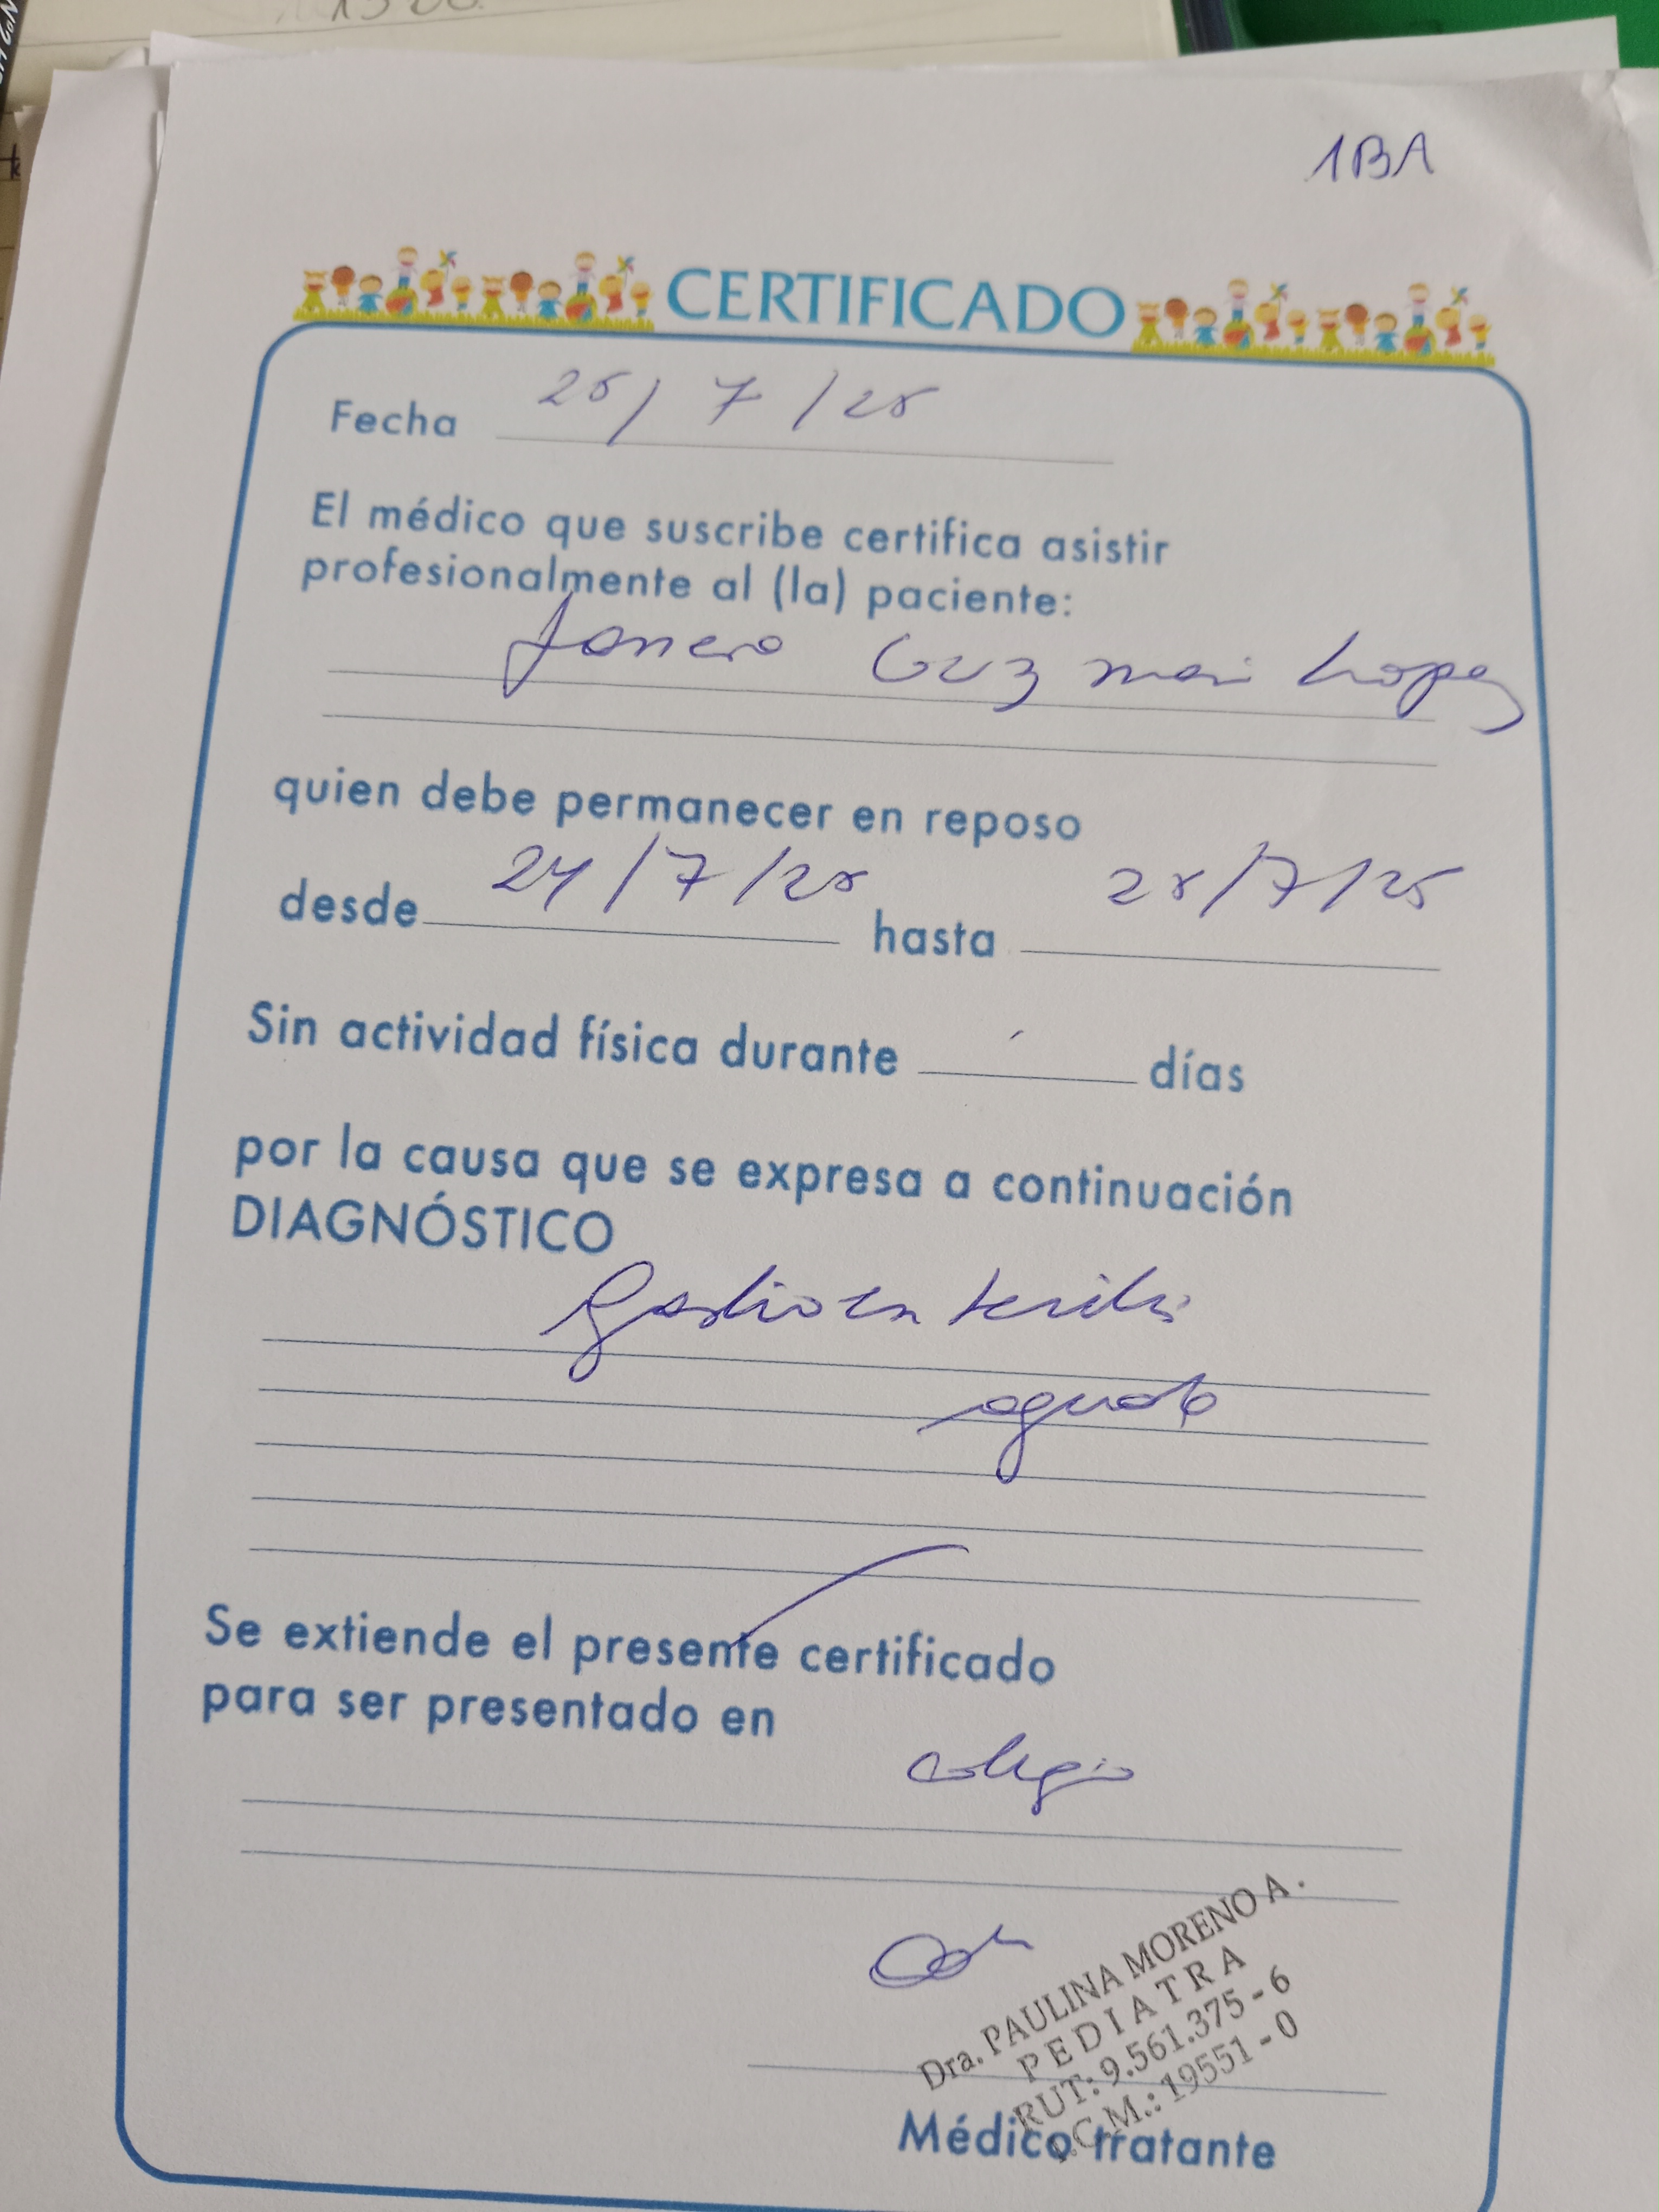 1BA
CERTIFICADO
Fecha 25/7/25
El médico que suscribe certifica asistir
profesionalmente al (la) paciente:
Guzman Lopez
quien debe permanecer en reposo
desde 24/7/25 hasta 25/7/25
Sin actividad física durante días
por la causa que se expresa a continuación
DIAGNÓSTICO
Gastroenteritis
aguda
Se extiende el presente certificado
para ser presentado en
colegio
Dra. PAULINA MORENO A.
PEDIATRA
RUT: 9.561.375-6
I.C.M.: 19551-0
Médico tratante